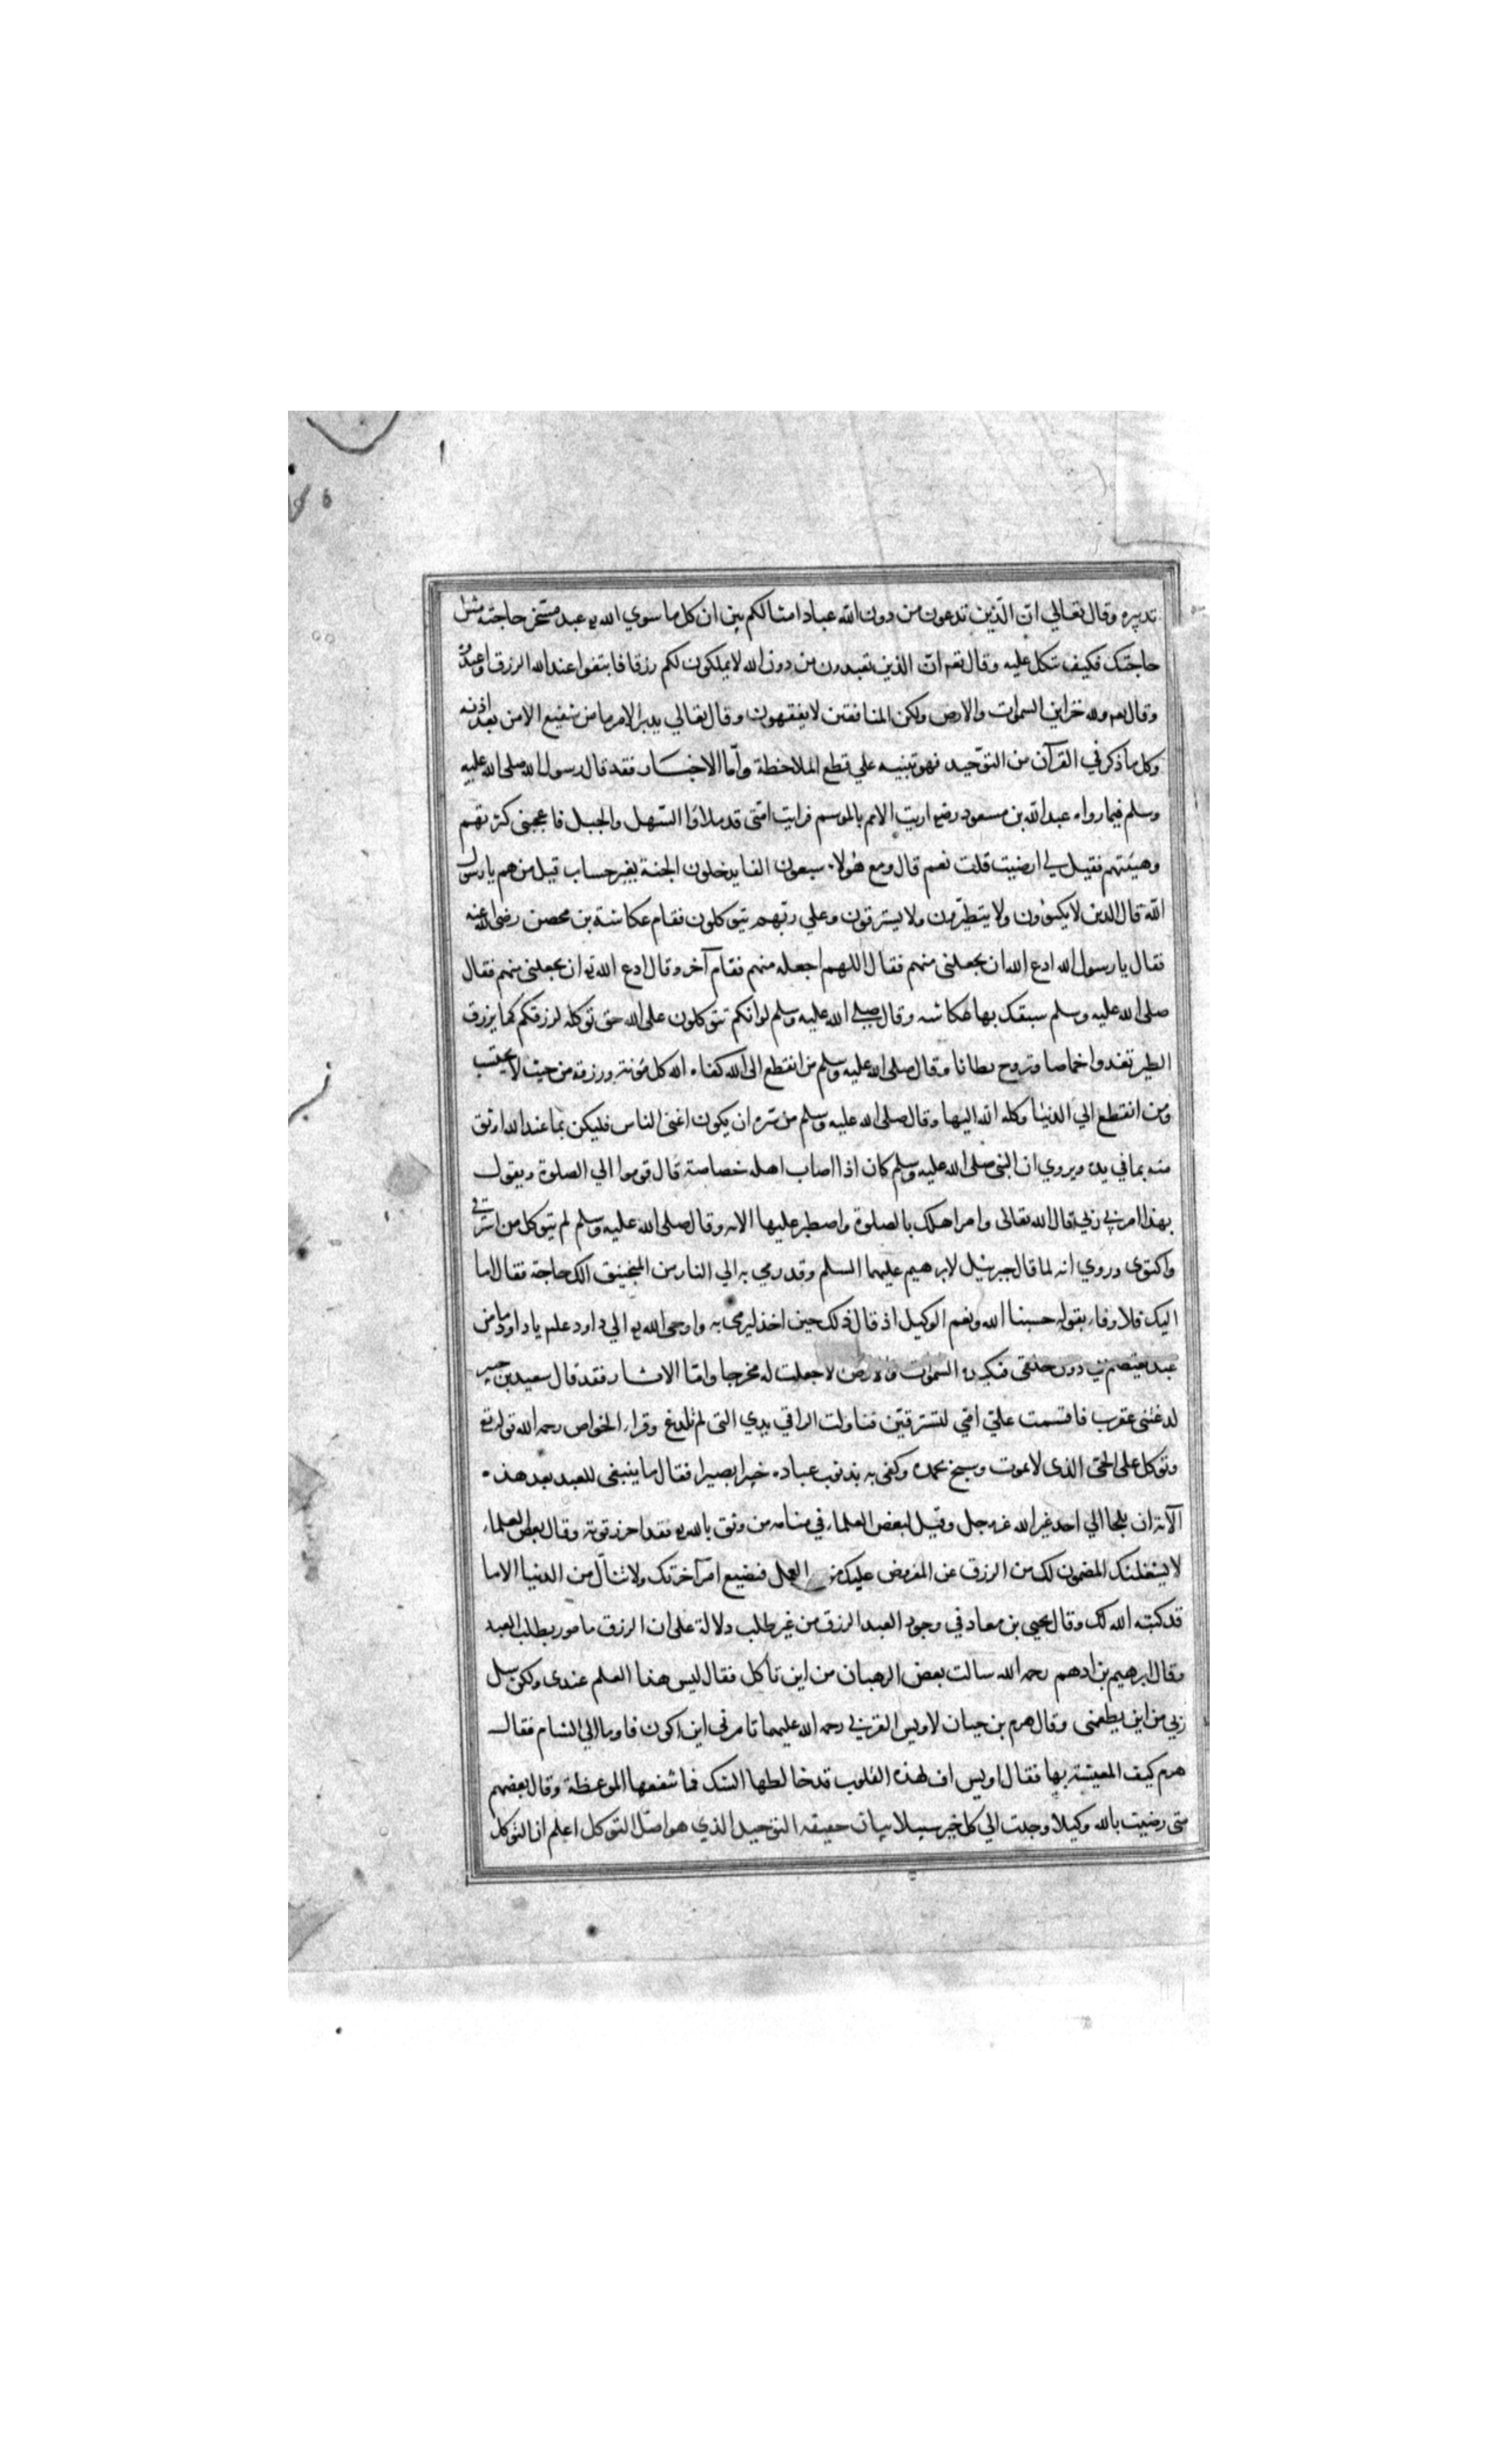 تدبيره وقال تعالي ان الذين تدعون من دون الله عباد امثالكم بين ان كل ما سوي الله عبد مسخر حاجته مثل
حاجتك فكيف تتكل عليه وقال تعه ان الذين تعبدون من دون الله لا يملكون لكم رزقا فابتغوا عند الله الرزق واعبدوه
وقال تعه ولله خزاين السموات والارض ولكن المنافقين لا يفقهون وقال تعالي يدبر الامر ما من شفيع الا من بعد اذنه
وكل ما ذكر في القرآن من التوحيد فهو تنبيه علي قطع الملاحظة وأما الاخبار فقد قال رسول الله صلى الله عليه
وسلم فيما رواه عبد الله بن مسعود رضه اريت الامم بالموسم فرايت امتى قد ملاؤا السهل والجبل فاعجبنى كثرتهم
وهيئتهم فقيل لي ارضيت قلت نعم قال ومع هولاء سبعون الفا يدخلون الجنة بغير حساب قيل من هم يا رسول
الله قال الذين لا يكتوون ولا يتطيرون ولا يسترقون وعلي ربهم يتوكلون فقام عكاشة بن محصن رضى الله عنه
فقال يا رسول الله ادع الله ان يجعلنى منهم فقال اللهم اجعله منهم فقام آخر وقال ادع الله ان يجعلنى منهم فقال
صلى الله عليه وسلم سبقك بها عكاشه وقال صلى الله عليه وسلم لو انكم تتوكلون على الله حق توكله لرزقكم كما يرزق
الطير تغدوا خماصا وتروح بطانا وقال صلى الله عليه وسلم من انقطع الى الله كفاه الله كل مؤنته ورزقه من حيث لا يحتسب
ومن انقطع الي الدنيا وكله الله اليها وقال صلى الله عليه وسلم من سره ان يكون اغنى الناس فليكن بما عند الله اوثق
منه بما في يده ويروي ان النبى صلى الله عليه وسلم كان اذا اصاب اهله خصاصة قال قوموا الي الصلوة ويقول
بهذا امرني ربي قال الله تعالى وامر اهلك بالصلوة واصطبر عليها الايه وقال صلى الله عليه وسلم لم يتوكل من استرقي
واكتوى وروي انه لما قال جبرئيل لابرهيم عليهما السلم وقد رمي به الي النار من المنجنيق الك حاجة فقال اما
اليك فلا وفاء بقوله حسبنا الله ونعم الوكيل اذ قال ذلك حين اخذ ليرمى به واوحى الله الي داود علم يا داود ما من
عبد يعتصم بي دون خلقى فتكيده السموات والارض الا جعلت له مخرجا واما الاثار فقد قال سعيد بن جبير
لدغتنى عقرب فاقسمت علي امي لتسترقين فناولت الراقي يدي التى لم تلدغ وقراء الخواص رحمه الله قوله تع
وتوكل على الحى الذى لا يموت وسبح بحمده وكفى به بذنوب عباده خبيرا بصيرا فقال ما ينبغى للعبد بعد هذه
الآية ان يلجا الي احد غير الله عز وجل وقيل لبعض العلماء في منامه من وثق بالله فقد احرز قوته وقال بعض العلماء
لا يشغلنك المضمون لك من الرزق عن المفروض عليك من العمل فتضيع امر آخرتك ولا تنال من الدنيا الا ما
قد كتبه الله لك وقال يحيى بن معاد في وجود العبد الرزق من غير طلب دلالة على ان الرزق مامور بطلب العبد
وقال ابرهيم بن ادهم رحمه الله سالت بعض الرهبان من اين تاكل فقال ليس هذا العلم عندى ولكن سل
ربي من اين يطعمنى وقال هرم بن حيان لاويس القرني رحمه الله عليهما تامرنى اين اكون فاوما الي الشام فقال
هرم كيف المعيشة بها فقال اويس اف لهذه القلوب قد خالطها الشك فما تنفعها الموعظة وقال بعضهم
متى رضيت بالله وكيلا وجدت الي كل خير سبيلا بيان حقيقه التوحيد الذي هو اصل التوكل اعلم ان التوكل